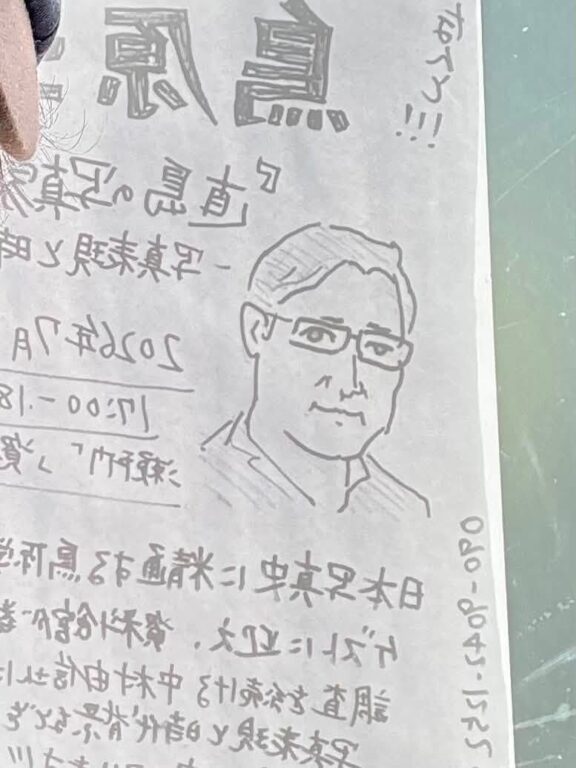 鳥原
『直島の写真
－写真表現と時
2026年7月
17:00-18
瀬戸内「」資
日本写真史に精通する鳥原学
ゲストに迎え、資料館が
調査を続ける中村由信さんに
写真表現と時代背景などを
090-9042-1252